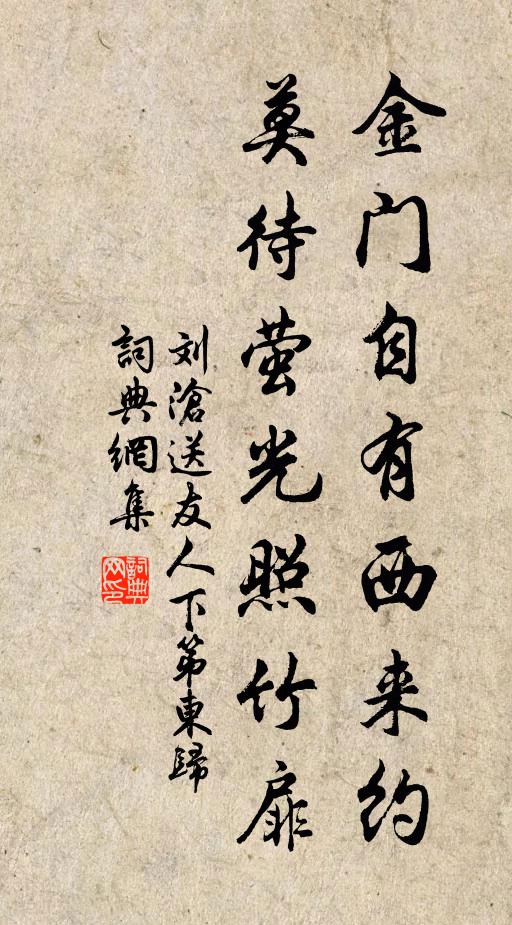 金门自有西来约
莫待萤光照竹扉
刘滄送友人下第東歸
詞典網集
詞典
网印